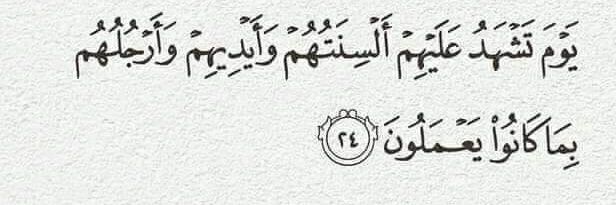 يَوْمَ تَشْهَدُ عَلَيْهِمْ أَلْسِنَتُهُمْ وَأَيْدِيهِمْ وَأَرْجُلُهُم
بِمَا كَانُوا۟ يَعْمَلُونَ ٢٤